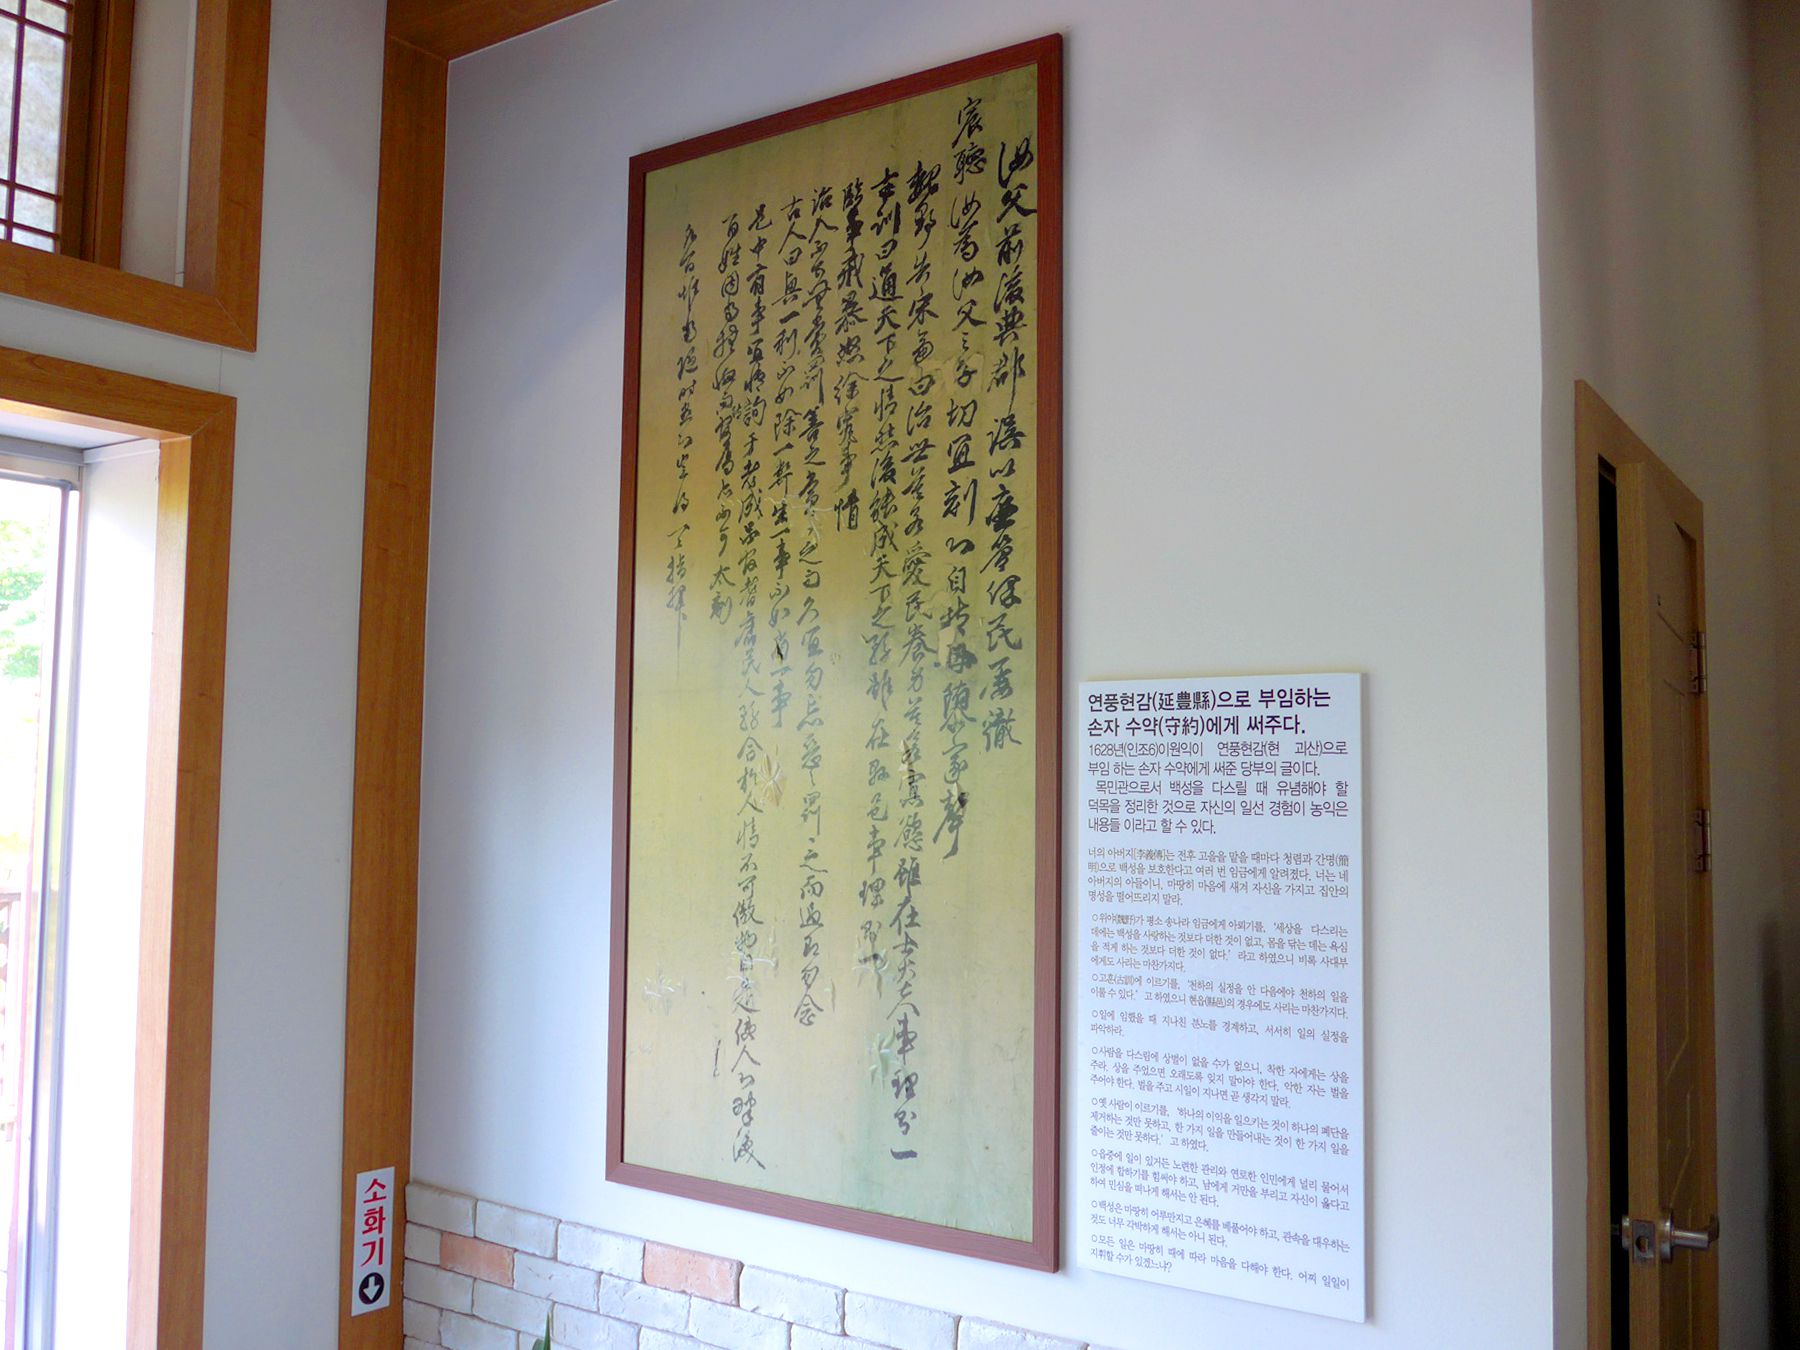 汝父前後典郡 誤以廉簡保民 屢徹
宸聽 汝爲汝父之子 切宜刻心自持 毋墮家聲
魏野告宋 曰治世莫若愛民養身莫若寡慾雖在士大夫事理則一
古訓曰通天下之情然後能成天下之務雖在縣邑事理則一
臨事戒暴怒徐究事情
治人不可無賞罰 善之賞之宜久勿忘惡之罰之而過即勿念
古人曰興一利不如除一弊生一事不如省一事
邑中有事宜博詢于老成 民人務合於人情不可傲物自是使人心睽渙
百姓固當撫恤而 屬亦不可太刻
凡百惟當隨時盡心 一一指揮
연풍현감(延豊縣)으로 부임하는
손자 수약(守約)에게 써주다.
1628년(인조6)이원익이 연풍현감(현 괴산)으로
부임 하는 손자 수약에게 써준 당부의 글이다.
목민관으로서 백성을 다스릴 때 유념해야 할
덕목을 정리한 것으로 자신의 일선 경험이 농익은
내용들 이라고 할 수 있다.
너의 아버지[李義傳]는 전후 고을을 맡을 때마다 청렴과 간명(簡
明)으로 백성을 보호한다고 여러 번 임금에게 알려졌다. 너는 네
아버지의 아들이니, 마땅히 마음에 새겨 자신을 가지고 집안의
명성을 떨어뜨리지 말라.
○위야(魏野)가 평소 송나라 임금에게 아뢰기를, '세상을 다스리는
데에는 백성을 사랑하는 것보다 더한 것이 없고, 몸을 닦는 데는 욕심
을 적게 하는 것보다 더한 것이 없다.' 라고 하였으니 비록 사대부
에게도 사리는 마찬가지다.
○고훈(古訓)에 이르기를, '천하의 실정을 안 다음에야 천하의 일을
이룰 수 있다.' 고 하였으니 현읍(縣邑)의 경우에도 사리는 마찬가지다.
○일에 임했을 때 지나친 분노를 경계하고, 서서히 일의 실정을
파악하라.
○사람을 다스림에 상벌이 없을 수가 없으니, 착한 자에게는 상을
주라. 상을 주었으면 오래도록 잊지 말아야 한다. 악한 자는 벌을
주어야 한다. 벌을 주고 시일이 지나면 곧 생각지 말라.
○옛 사람이 이르기를, '하나의 이익을 일으키는 것이 하나의 폐단을
제거하는 것만 못하고, 한 가지 일을 만들어내는 것이 한 가지 일을
줄이는 것만 못하다.' 고 하였다.
○읍중에 일이 있거든 노련한 관리와 연로한 인민에게 널리 물어서
인정에 합하기를 힘써야 하고, 남에게 거만을 부리고 자신이 옳다고
하여 민심을 떠나게 해서는 안 된다.
○백성은 마땅히 어루만지고 은혜를 베풀어야 하고, 관속을 대우하는
것도 너무 각박하게 해서는 아니 된다.
○모든 일은 마땅히 때에 따라 마음을 다해야 한다. 어찌 일일이
지휘할 수가 있겠느냐?
소화기